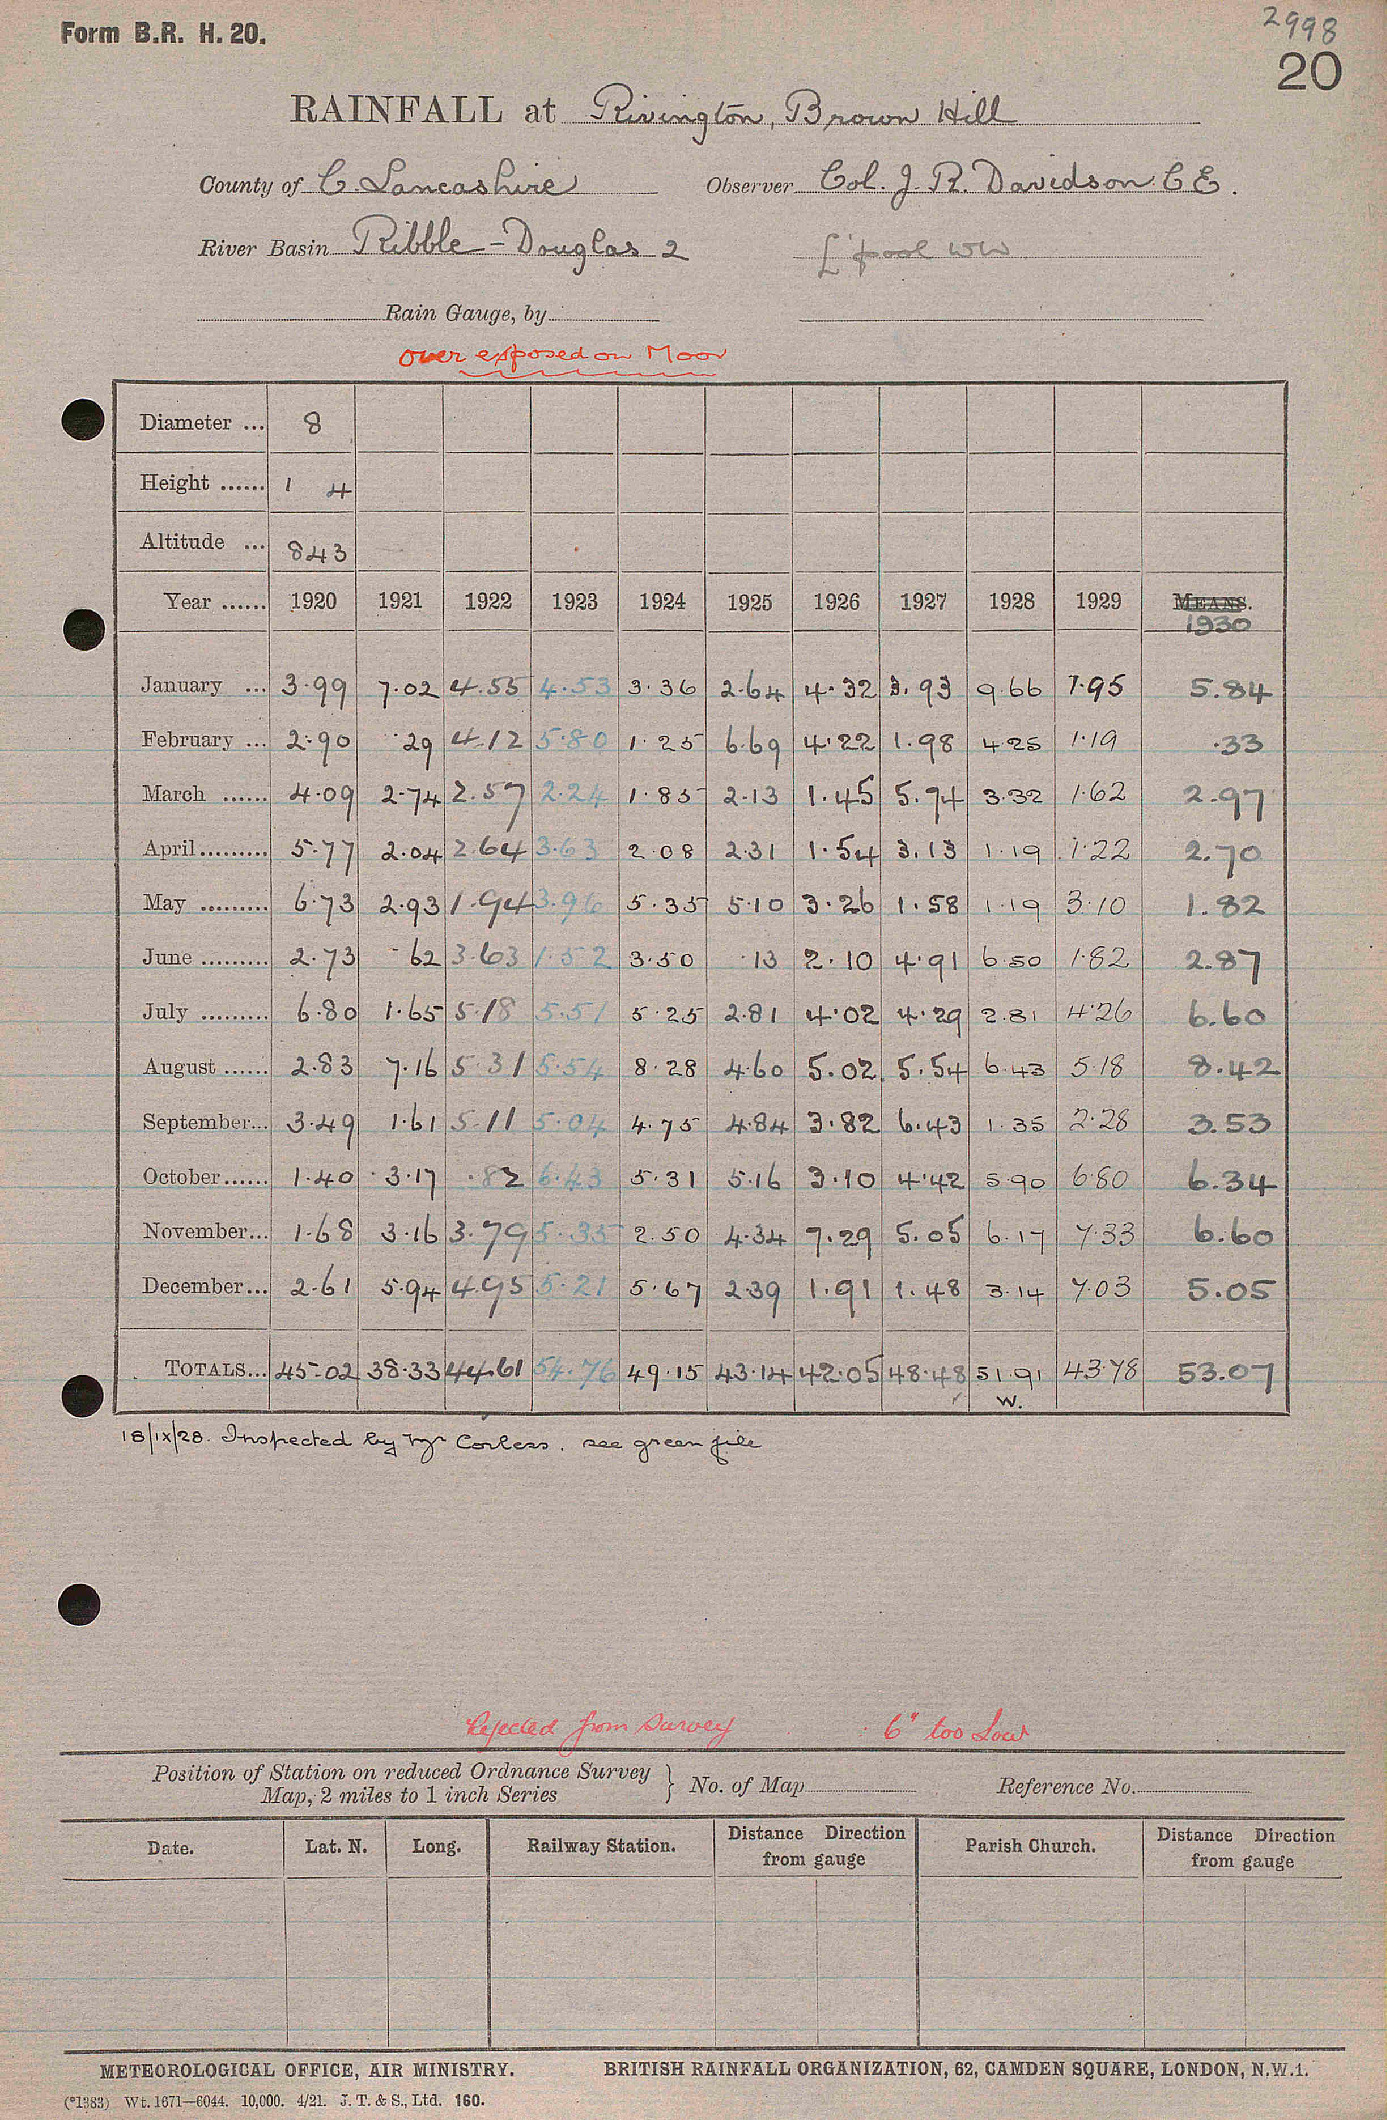 Form B.R. H. 20.
2998
20
RAINFALL at Rivington, Brown Hill
County of C. Lancashire Observer Col. J. R. Davidson C E.
River Basin Ribble - Douglas 2 L'pool WW
Rain Gauge, by
over exposed on Moor
Diameter ... 8
Height ...... 1 4
Altitude ... 843
Year ...... 1920 1921 1922 1923 1924 1925 1926 1927 1928 1929 MEANS.
1930
January ... 3.99 7.02 4.55 4.53 3.36 2.64 4.32 3.93 9.66 1.95 5.84
February ... 2.90 .29 4.12 5.80 1.25 6.69 4.22 1.98 4.25 1.19 .33
March ...... 4.09 2.74 2.57 2.24 1.85 2.13 1.45 5.74 3.32 1.62 2.97
April ......... 5.77 2.04 2.64 3.63 2.08 2.31 1.54 3.13 1.19 1.22 2.70
May ......... 6.73 2.93 1.94 3.96 5.35 5.10 3.26 1.58 1.19 3.10 1.82
June ......... 2.73 .62 3.63 1.52 3.50 .13 2.10 4.91 6.50 1.82 2.87
July ......... 6.80 1.65 5.18 5.51 5.25 2.81 4.02 4.29 2.81 4.26 6.60
August ...... 2.83 7.16 5.31 5.54 8.28 4.60 5.02 5.54 6.43 5.18 8.42
September... 3.49 1.61 5.11 5.04 4.75 4.84 3.82 6.43 1.35 2.28 3.53
October...... 1.40 3.17 .82 6.43 5.31 5.16 3.10 4.42 5.90 6.80 6.34
November... 1.68 3.16 3.79 5.35 2.50 4.34 7.29 5.05 6.17 7.33 6.60
December... 2.61 5.94 4.95 5.21 5.67 2.39 1.91 1.48 3.14 7.03 5.05
TOTALS... 45.02 38.33 44.61 54.76 49.15 43.14 42.05 48.48 51.91 43.78 53.07
W.
18/IX/28. Inspected by Mr Corless. see green file
Rejected from survey 6" too Low
Position of Station on reduced Ordnance Survey
Map, 2 miles to 1 inch Series } No. of Map Reference No.
Date. Lat. N. Long. Railway Station. Distance Direction from gauge Parish Church. Distance Direction from gauge
METEOROLOGICAL OFFICE, AIR MINISTRY. BRITISH RAINFALL ORGANIZATION, 62, CAMDEN SQUARE, LONDON, N.W.1.
(*1383) Wt. 1671—6044. 10,000. 4/21. J. T. & S., Ltd. 160.